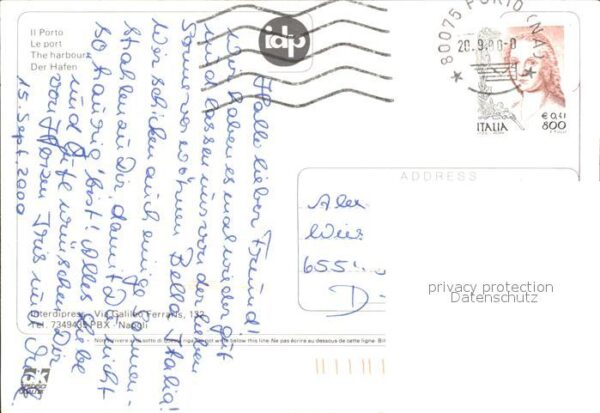 Il Porto
Le port
The harbour
Der Hafen
idp
80075 PORIO (NA)
20.9.00-0
ITALIA
€ 0,41
800
Hallo lieber Freund!
Wir haben es mal wieder gut
und lassen uns von der lieben
Sonne verwöhnen. Bella Italia!
Wir schicken auch einige Sonnen-
strahlen zu Dir, damit Du nicht
so traurig bist! Alles Liebe
und Gute wünschen Dir
von Herzen Iris und
15. Sept. 2000
ADDRESS
Alex
6551
D-
privacy protection
Datenschutz
Interdipress - Via Galileo Ferraris, 132
Tel. 7349435 PBX - Napoli
Non scrivere sotto questa riga - Do not write below this line. Ne pas écrire au dessous de cette ligne.